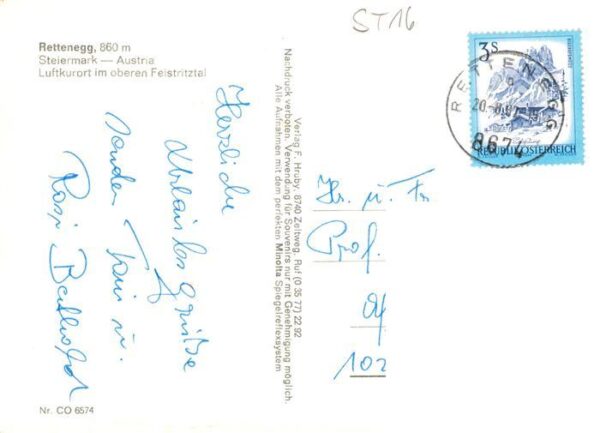 ST16
Rettenegg, 860 m
Steiermark — Austria
Luftkurort im oberen Feistritztal
Herzliche
Urlaubsgrüße
senden
u.
Rosi
Nr. CO 6574
Verlag F. Hruby, 8740 Zeltweg, Ruf (0 35 77) 22 92
Nachdruck verboten. Verwendung für Souvenirs nur mit Genehmigung möglich.
Alle Aufnahmen mit dem perfekten Minolta Spiegelreflexsystem
3 S
REPUBLIK ÖSTERREICH
RETTENEGG
8674
Hr. u. Fr.
Prof.
102